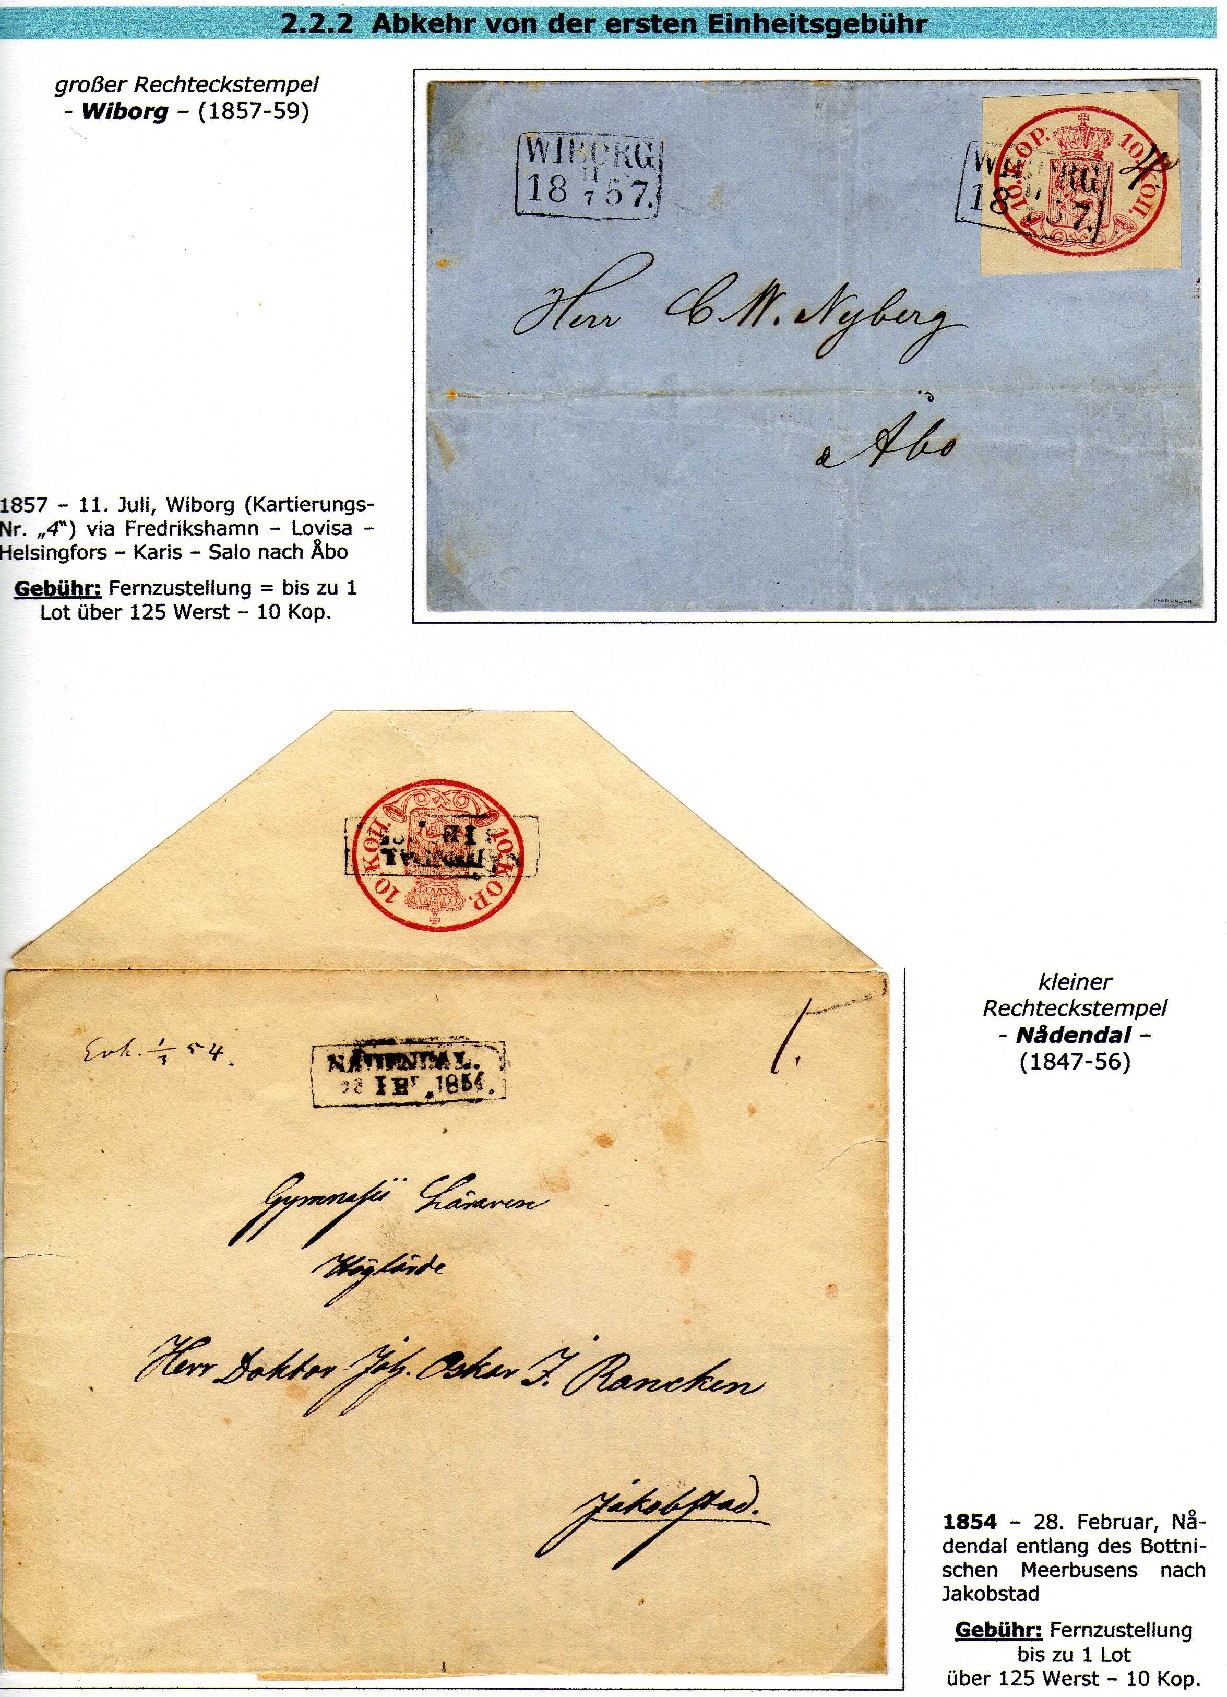 2.2.2 Abkehr von der ersten Einheitsgebühr
großer Rechteckstempel
- Wiborg – (1857-59)
WIBORG
11
18 7 57.
WIBORG
18 57.
10. KOP. 10. КОП.
4
Herr C W. Nyberg
Åbo
1857 – 11. Juli, Wiborg (Kartierungs-
Nr. „4“) via Fredrikshamn – Lovisa –
Helsingfors – Karis – Salo nach Åbo
Gebühr: Fernzustellung = bis zu 1
Lot über 125 Werst – 10 Kop.
10 КОП. 10. KOP.
NÅDENDAL
kleiner
Rechteckstempel
- Nådendal –
(1847-56)
Erh. 1/3 54.
NÅDENDAL.
28 FEBr. 1854.
1.
Gymnasii Läraren
Höglärde
Herr Doktor Joh. Oskar I. Rancken
Jakobstad.
1854 – 28. Februar, Nå-
dendal entlang des Bottni-
schen Meerbusens nach
Jakobstad
Gebühr: Fernzustellung
bis zu 1 Lot
über 125 Werst – 10 Kop.